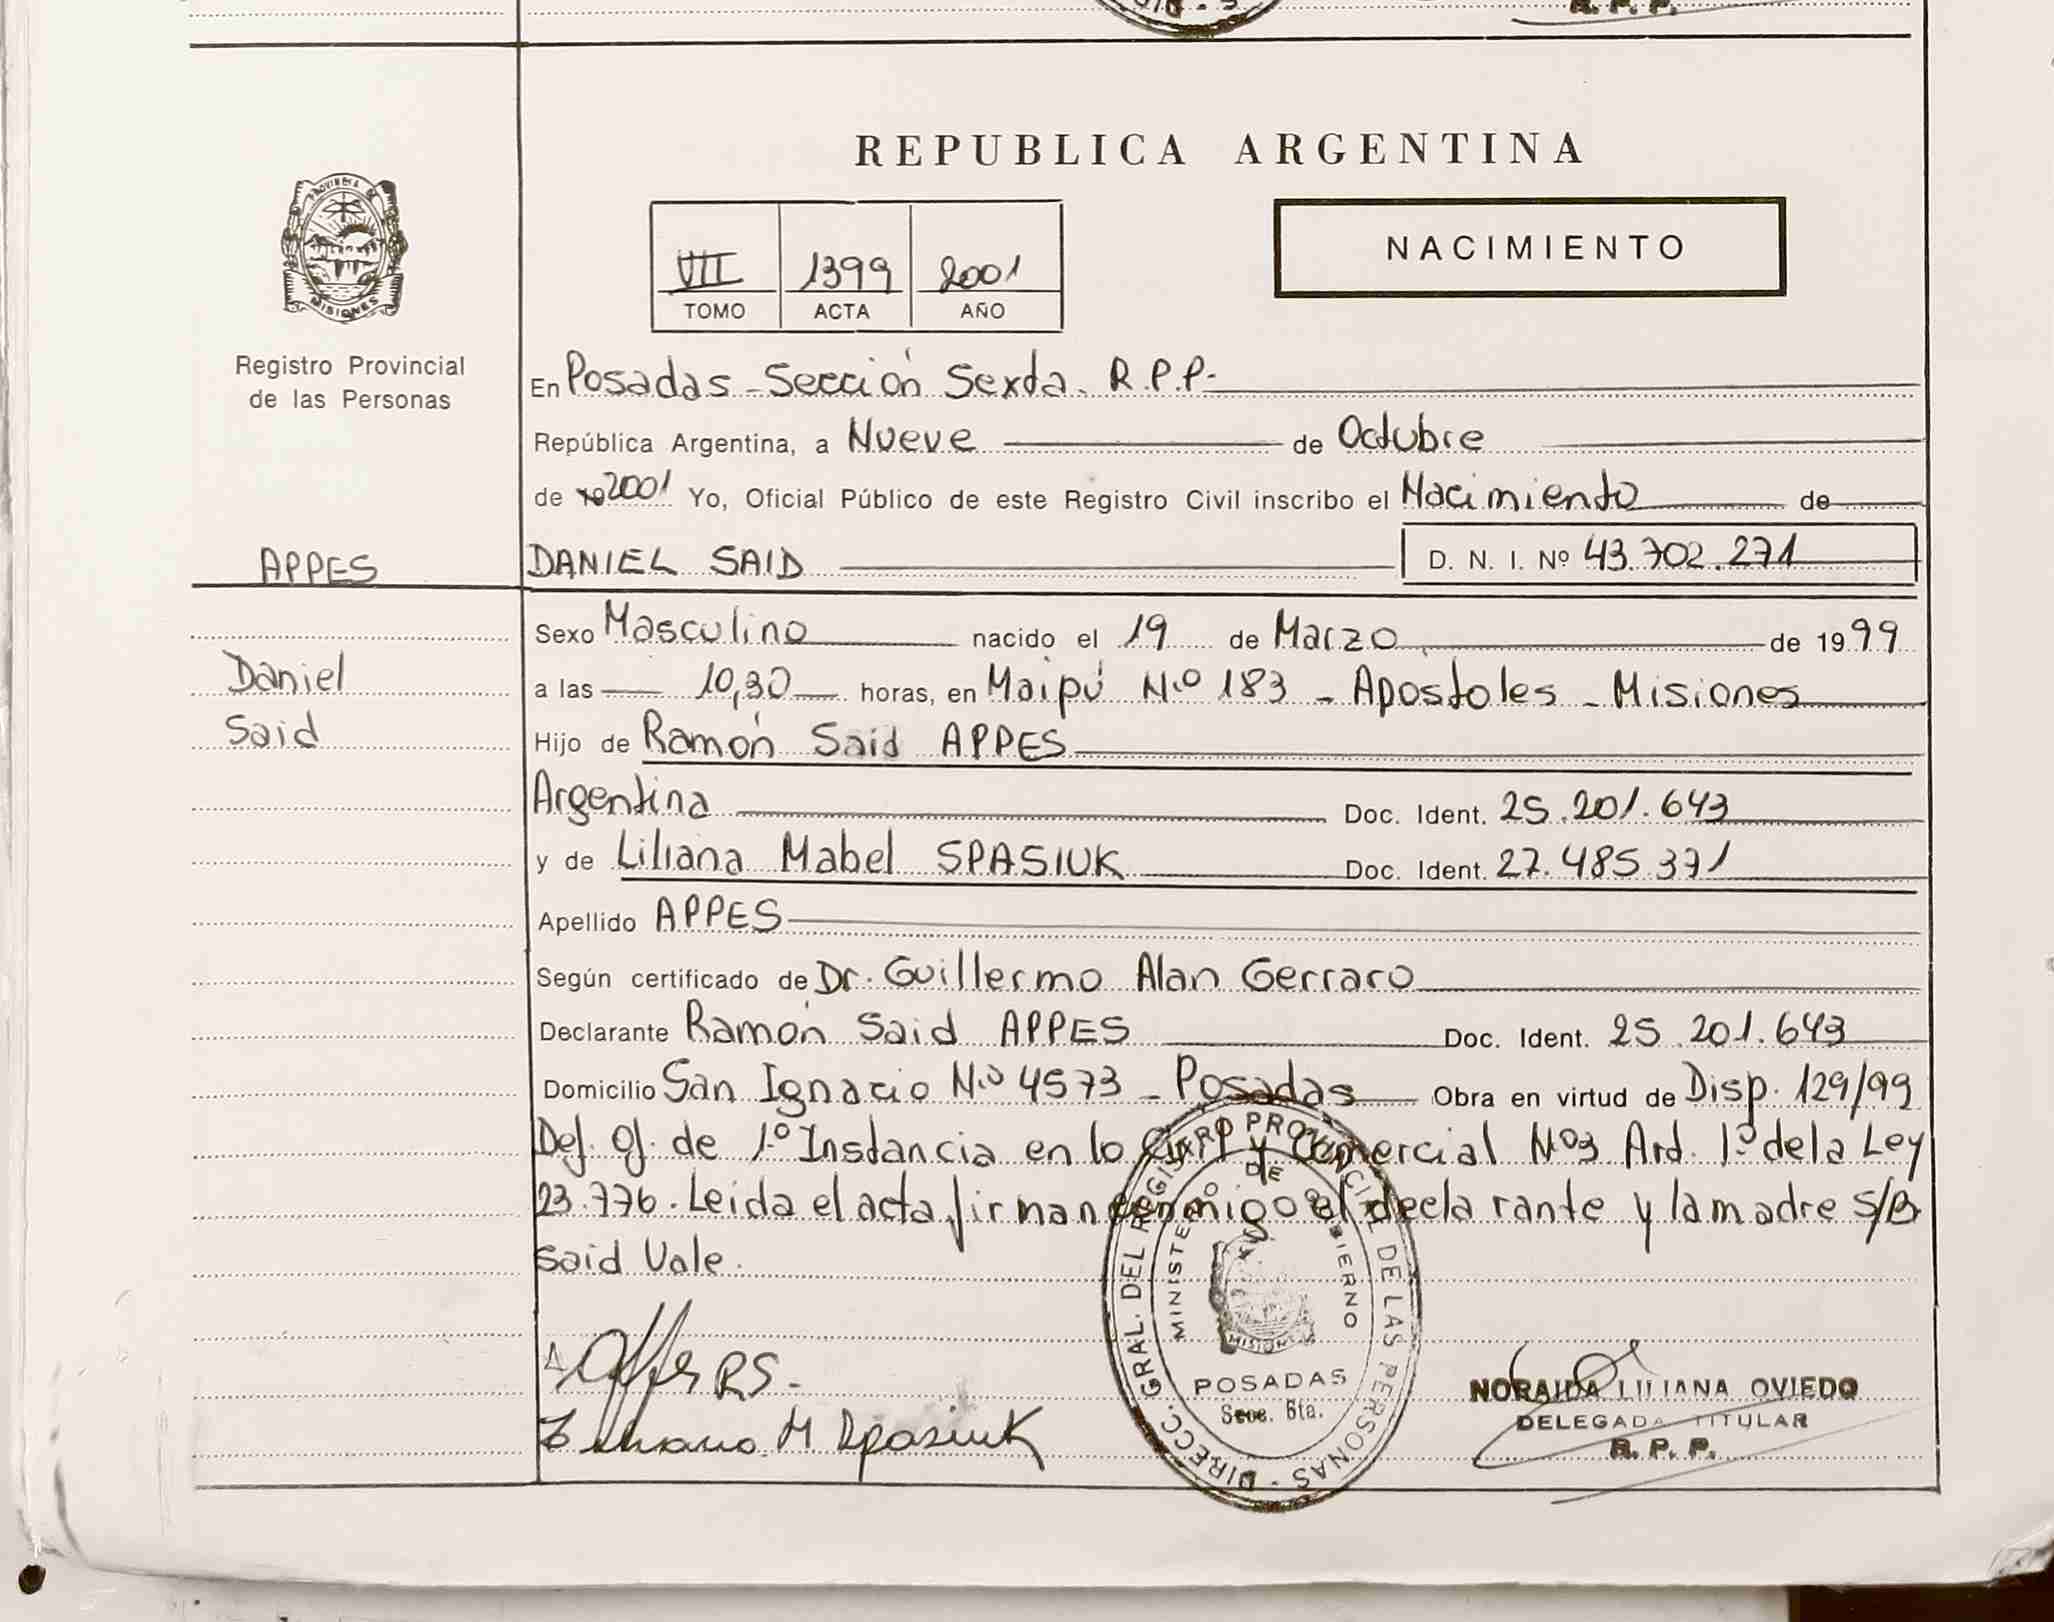 R. P. P.
REPUBLICA ARGENTINA
PROVINCIA DE
MISIONES
Registro Provincial
de las Personas
VII 1399 2001
TOMO ACTA AÑO
NACIMIENTO
En Posadas - Sección Sexta. R.P.P.-
República Argentina, a Nueve de Octubre
de 2001 Yo, Oficial Público de este Registro Civil inscribo el Nacimiento de
APPES DANIEL SAID D. N. I. Nº 43.702.271
Sexo Masculino nacido el 19 de Marzo de 1999
Daniel a las 10,30 horas, en Maipú N.º 183 - Apostoles - Misiones
Said Hijo de Ramón Said APPES
Argentina Doc. Ident. 25.201.643
y de Liliana Mabel SPASIUK Doc. Ident. 27.485.371
Apellido APPES
Según certificado de Dr. Guillermo Alan Gerraro
Declarante Ramón Said APPES Doc. Ident. 25.201.643
Domicilio San Ignacio N.º 4573 - Posadas Obra en virtud de Disp. 129/99
Def. Of. de 1.º Instancia en lo Civil y Comercial Nº3 Art. 1º de la Ley
23.776. Leida el acta, firman conmigo el declarante y la madre S/B
Said Vale.
Appes RS.
M Spasiuk
DIRECC. GRAL. DEL REGISTRO PROVINCIAL DE LAS PERSONAS -
MINISTERIO DE GOBIERNO
MISIONES
POSADAS
Secc. 6ta.
NORAIDA LILIANA OVIEDO
DELEGADA TITULAR
R. P. P.